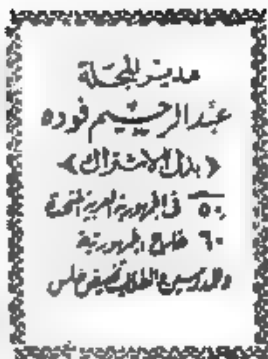 مدير المجلة
عبد الرحيم فوده
﴿ بدل الاشتراك ﴾
٥٠ فى الجمهورية العربية المتحدة
٦٠ خارج الجمهورية
وللمدرسين والطلاب تخفيض خاص